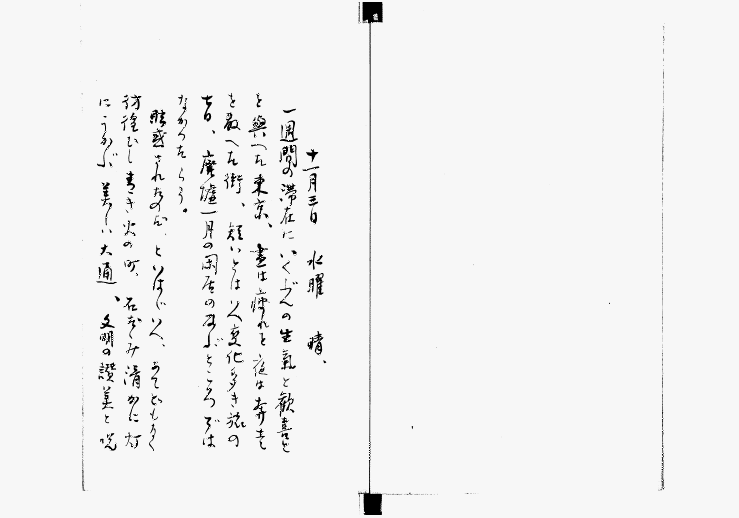 十一月三日 水曜 晴、
一週間の滞在にいくぶんの生氣と歓喜を
を與へた東京、晝は疲れを夜は奔走
を敎へた街、短いとはいへ変化多き旅の
昔日、廃墟一月の閑居の及ぶところでは
なかつたらう。
眩惑されたのだ、といはばいへ、あてどもなく
彷徨ひし青き火の町、石だゝみ清かに灯
にうかぶ美しい大通、文明の讃美と呪